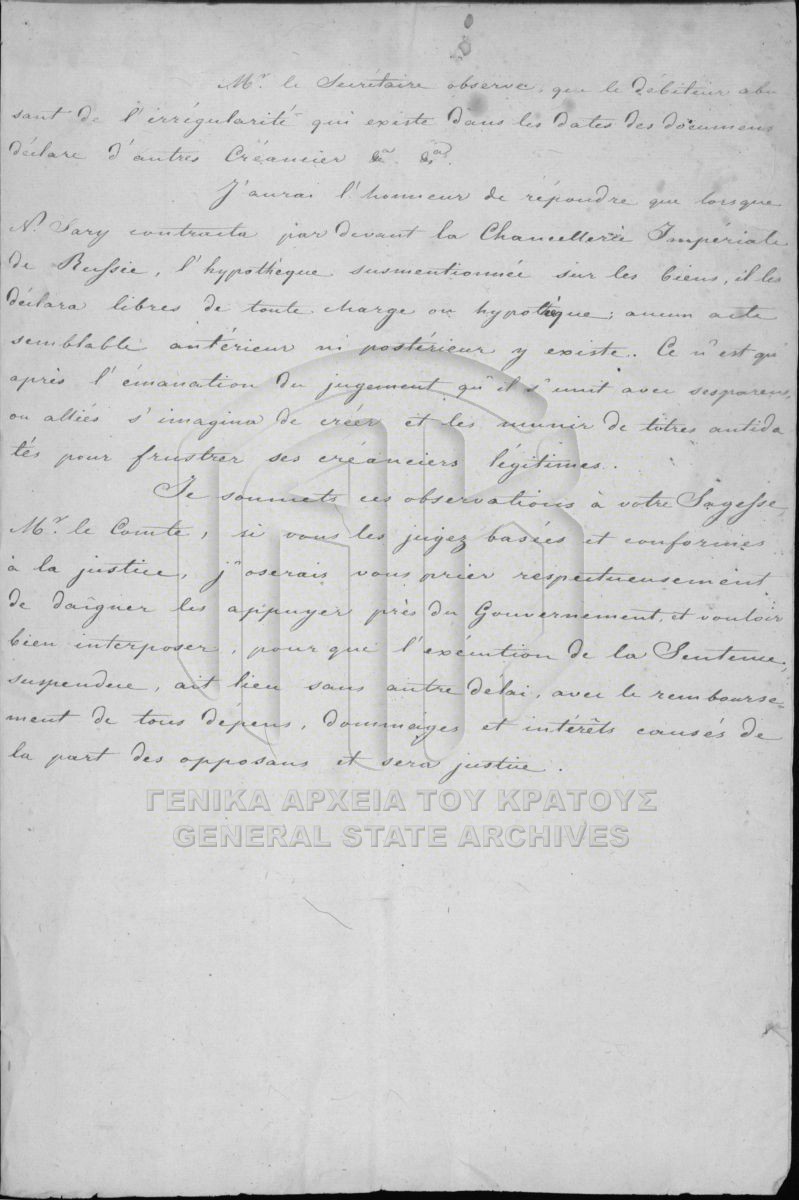 Mr. le Secrétaire observe, que le débiteur abu
sant de l'irrégularité qui existe dans les dates des documens
déclare d'autres Créancier &a. &a.
J'aurai l'honneur de répondre que lorsque
N. Sary contracta par devant la Chancellerie Impériale
de Russie, l'hypothèque susmentionnée sur les biens, il les
déclara libres de toute charge ou hypothèque; aucun acte
semblable antérieur ni postérieur y existe. Ce n'est qu'
après l'émanation du jugement qu'il s'unit avec ses parens,
ou alliés s'imagina de créer et les munir de titres antida
tés pour frustrer ses créanciers légitimes.
Je soumets ces observations à votre Sagesse,
Mr. le Comte, si vous les jugez basées et conformes
à la justice, j'oserais vous prier respectueusement
de daigner les appuyer près du Gouvernement, et vouloir
bien interposer, pour que l'exécution de la Sentence,
suspendue, ait lieu sans autre délai, avec le rembourse-
ment de tous dépens, dommages et intérêts causés de
la part des opposans et sera justice.
ΓΕΝΙΚΑ ΑΡΧΕΙΑ ΤΟΥ ΚΡΑΤΟΥΣ
GENERAL STATE ARCHIVES